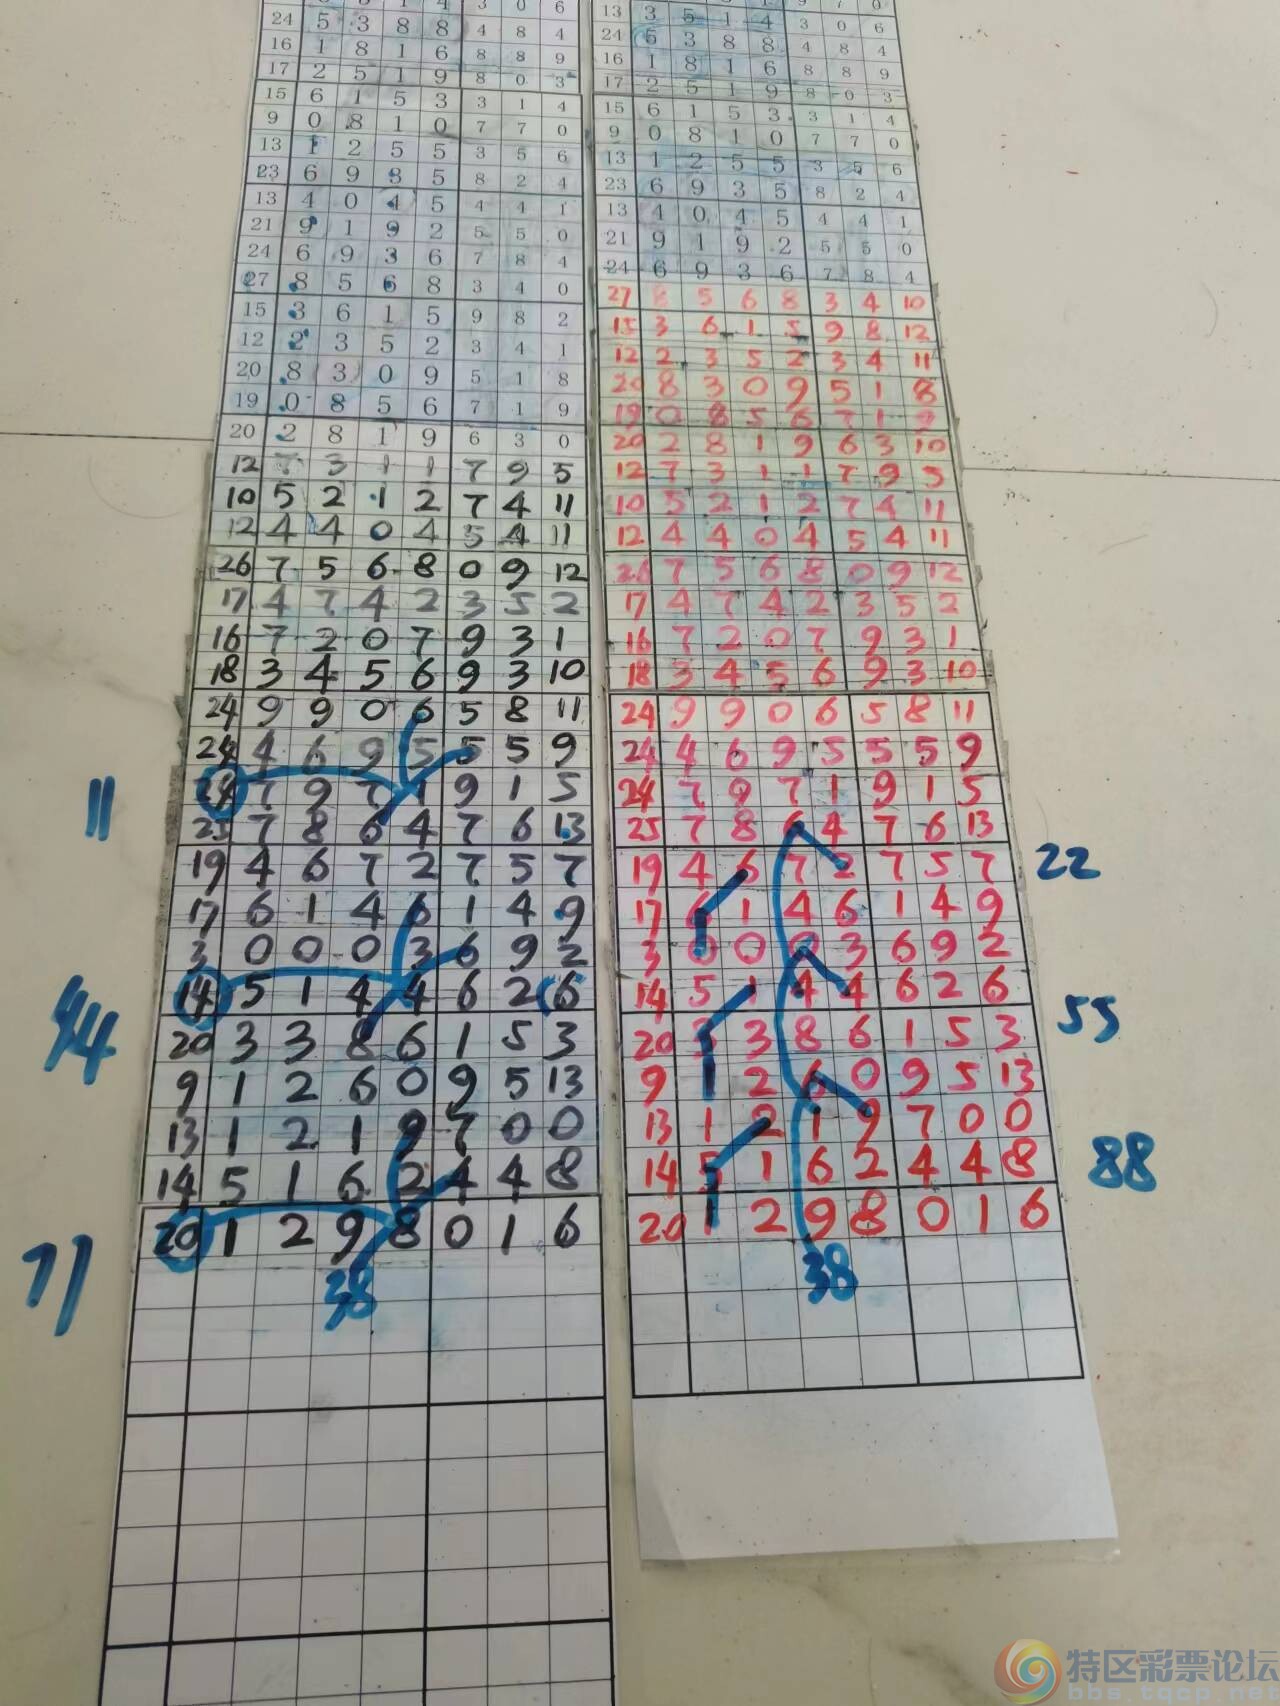 24 5 3 8 8 4 8 4
16 1 8 1 6 8 8 9
17 2 5 1 9 8 0 3
15 6 1 5 3 3 1 4
9 0 8 1 0 7 7 0
13 1 2 5 5 3 5 6
23 6 9 3 5 8 2 4
13 4 0 4 5 4 4 1
21 9 1 9 2 5 5 0
24 6 9 3 6 7 8 4
27 8 5 6 8 3 4 0
15 3 6 1 5 9 8 2
12 2 3 5 2 3 4 1
20 8 3 0 9 5 1 8
19 0 8 5 6 7 1 9
20 2 8 1 9 6 3 0
12 7 3 1 1 7 9 5
10 5 2 1 2 7 4 11
12 4 4 0 4 5 4 11
26 7 5 6 8 0 9 12
17 4 7 4 2 3 5 2
16 7 2 0 7 9 3 1
18 3 4 5 6 9 3 10
24 9 9 0 6 5 8 11
24 4 6 9 5 5 5 9
11 24 7 9 7 1 9 1 5
25 7 8 6 4 7 6 13
19 4 6 7 2 7 5 7
17 6 1 4 6 1 4 9
3 0 0 0 3 6 9 2
44 14 5 1 4 4 6 2 6
20 3 3 8 6 1 5 3
9 1 2 6 0 9 5 13
13 1 2 1 9 7 0 0
14 5 1 6 2 4 4 8
77 20 1 2 9 8 0 1 6
38
13 3 5 1 4 3 0 6
24 5 3 8 8 4 8 4
16 1 8 1 6 8 8 9
17 2 5 1 9 8 0 3
15 6 1 5 3 3 1 4
9 0 8 1 0 7 7 0
13 1 2 5 5 3 5 6
23 6 9 3 5 8 2 4
13 4 0 4 5 4 4 1
21 9 1 9 2 5 5 0
24 6 9 3 6 7 8 4
27 8 5 6 8 3 4 10
15 3 6 1 5 9 8 12
12 2 3 5 2 3 4 11
20 8 3 0 9 5 1 8
19 0 8 5 6 7 1 9
20 2 8 1 9 6 3 10
12 7 3 1 1 7 9 5
10 5 2 1 2 7 4 11
12 4 4 0 4 5 4 11
26 7 5 6 8 0 9 12
17 4 7 4 2 3 5 2
16 7 2 0 7 9 3 1
18 3 4 5 6 9 3 10
24 9 9 0 6 5 8 11
24 4 6 9 5 5 5 9
24 7 9 7 1 9 1 5
25 7 8 6 4 7 6 13
19 4 6 7 2 7 5 7 22
17 6 1 4 6 1 4 9
3 0 0 0 3 6 9 2
14 5 1 4 4 6 2 6 55
20 3 3 8 6 1 5 3
9 1 2 6 0 9 5 13
13 1 2 1 9 7 0 0
14 5 1 6 2 4 4 8 88
20 1 2 9 8 0 1 6
38
特区彩票论坛
bbs.tqcp.net